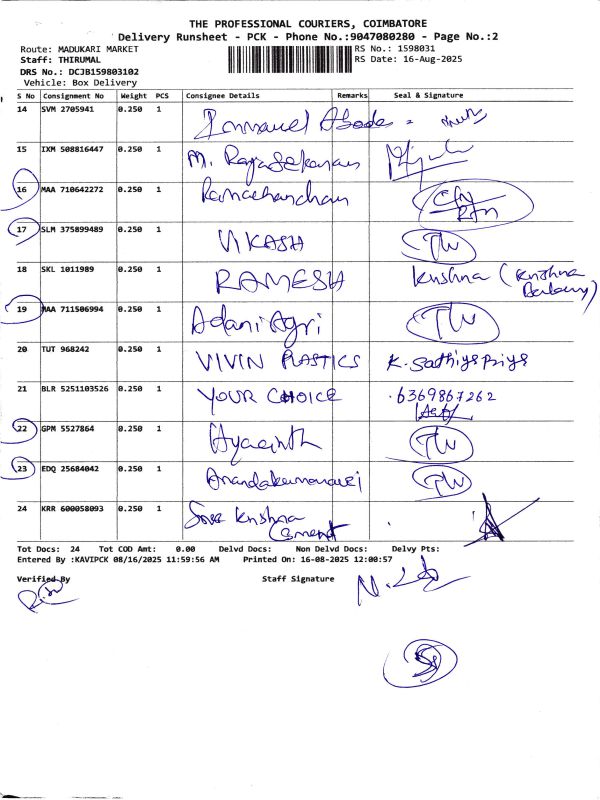 THE PROFESSIONAL COURIERS, COIMBATORE
Delivery Runsheet - PCK - Phone No.:9047080280 - Page No.:2
Route: MADUKARI MARKET RS No.: 1598031
Staff: THIRUMAL RS Date: 16-Aug-2025
DRS No.: DCJB159803102
Vehicle: Box Delivery
S No Consignment No Weight PCS Consignee Details Remarks Seal & Signature
14 SVM 2705941 0.250 1
15 IXM 508816447 0.250 1 M. Rajasekaran
16 MAA 710642272 0.250 1 Ramachandran
17 SLM 375899489 0.250 1 VIKASH
18 SKL 1011989 0.250 1 RAMESH Krishna (Krishna
19 MAA 711506994 0.250 1 Adani Agri
20 TUT 968242 0.250 1 VIVIN PLASTICS K. Sathiya Priya
21 BLR 5251103526 0.250 1 YOUR CHOICE 6369867262
22 GPM 5527864 0.250 1 Hyacinth
23 EDQ 25684042 0.250 1
24 KRR 600058093 0.250 1 Sree Krishna
Cement
Tot Docs: 24 Tot COD Amt: 0.00 Delvd Docs: Non Delvd Docs: Delvy Pts:
Entered By :KAVIPCK 08/16/2025 11:59:56 AM Printed On: 16-08-2025 12:00:57
Verified By Staff Signature